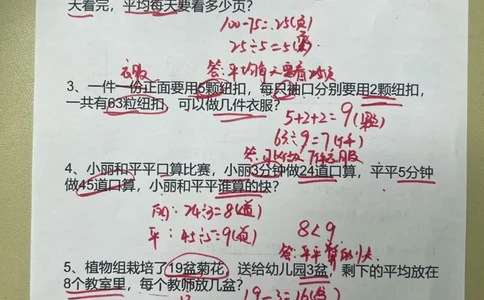 天看完，平均每天要看多少页？
100-75=25(页)
25÷5=5(页)
答:平均每天要看5页
衣服
3、一件一份正面要用5颗纽扣，每只袖口分别要用2颗纽扣，
一共有63粒纽扣，可以做几件衣服？
5+2+2=9(颗)
63÷9=7(件)
答:可以做7件衣服
4、小丽和平平口算比赛，小丽3分钟做24道口算，平平5分钟
做45道口算，小丽和平平谁算的快？
24÷3=8(道)
平:45÷5=9(道)
8<9
答:平平算的快
5、植物组栽培了19盆菊花，送给幼儿园3盆，剩下的平均放在
8个教室里，每个教师放几盆？
19-3=16(盆)